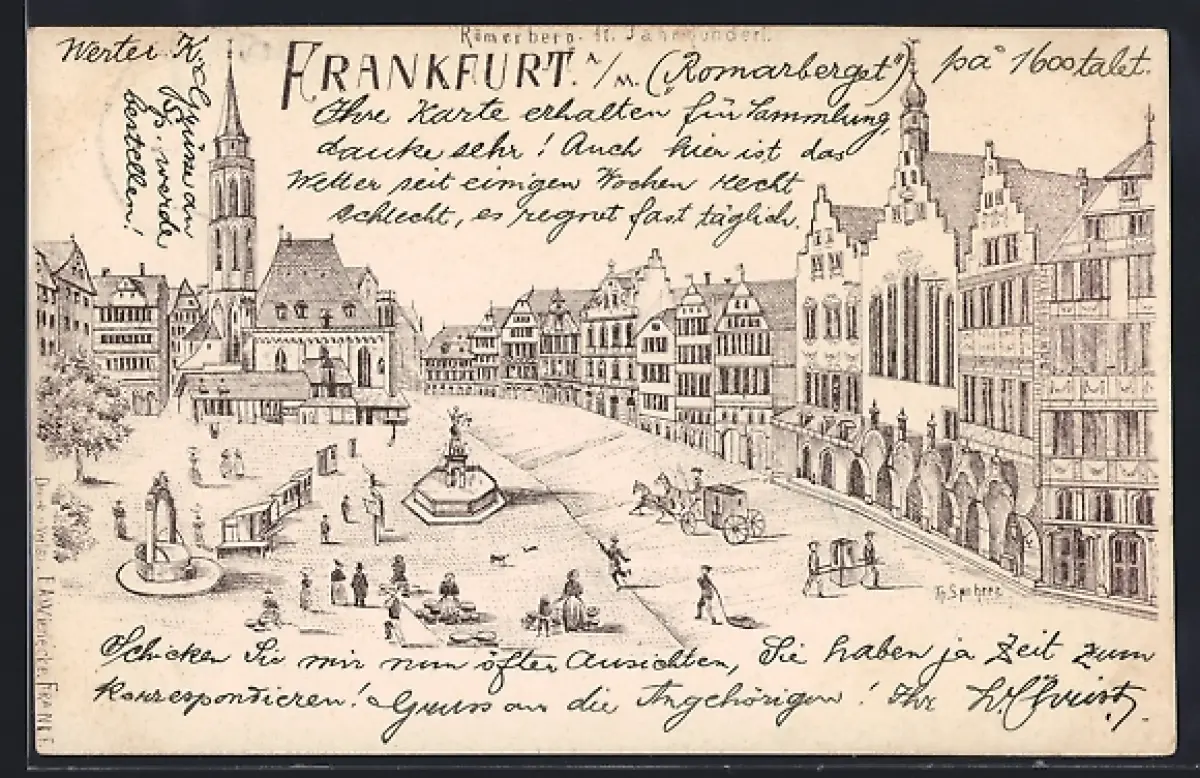 Römerberg. 11. Jahrhundert.
FRANKFURT. A/M. ("Romarberget") på 1600talet.
Werter K.
Ihre Karte erhalten für Sammlung,
danke sehr! Auch hier ist das
Wetter seit einigen Wochen recht
schlecht, es regnet fast täglich.
Grüsse an
werde
bestellen!
Th. Spohrer
Schicken Sie mir nun öfter Ansichten, Sie haben ja Zeit zum
korrespondieren! Gruss an die Angehörigen! Ihr
FRANKF.